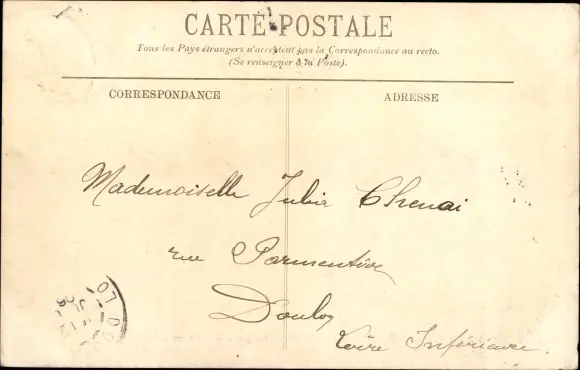 CARTE POSTALE
Tous les Pays étrangers n'acceptent pas la Correspondance au recto.
(Se renseigner à la Poste).
CORRESPONDANCE
ADRESSE
Mademoiselle Julia Chenai
rue Parmentier
Doulon
Loire Inférieure.